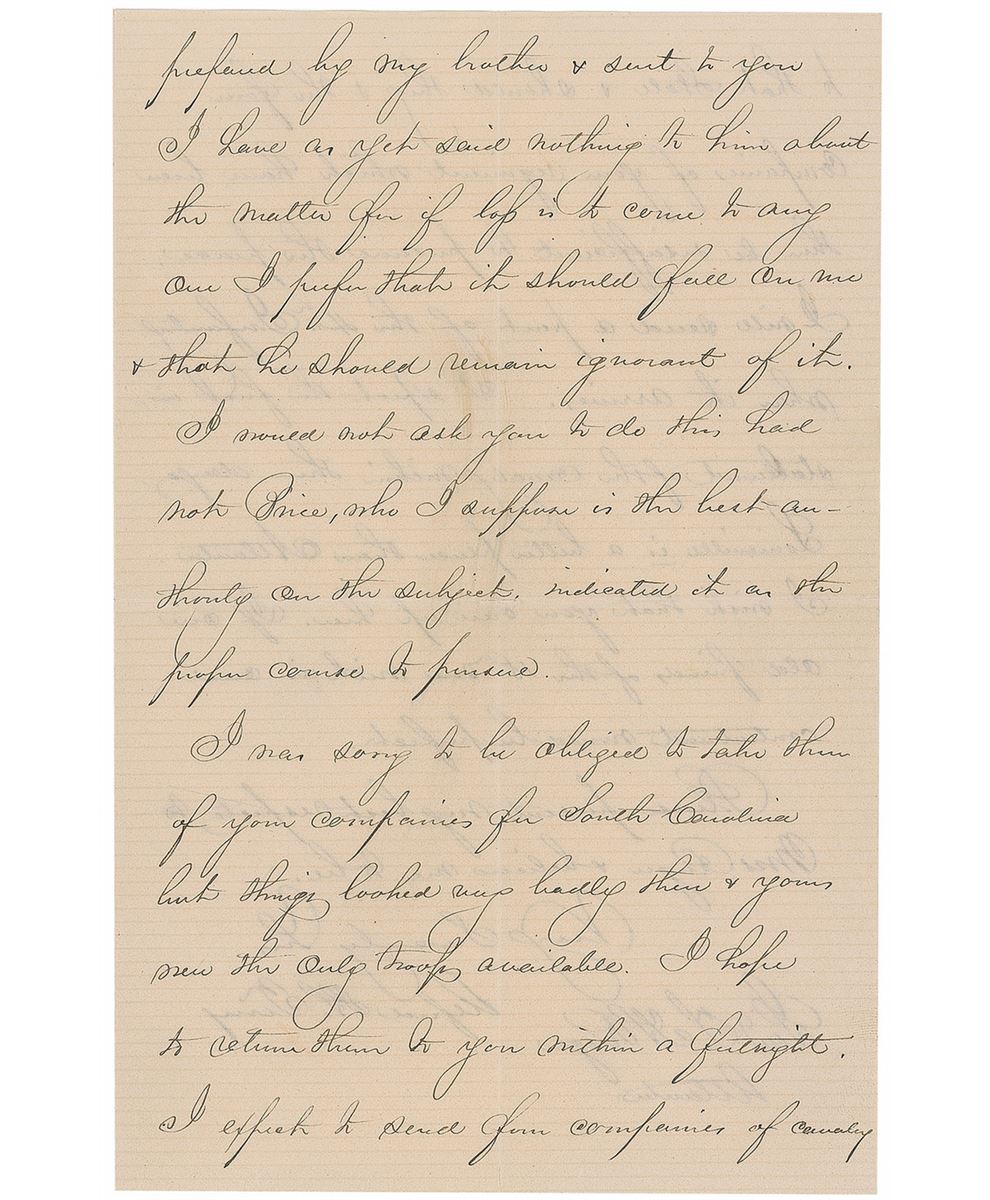 prepared by my brother & sent to you
I have as yet said nothing to him about
the matter for if loss is to come to any
one I prefer that it should fall on me
& that he should remain ignorant of it.
I would not ask you to do this had
not Price, who I suppose is the best au-
thority on the subject, indicated it as the
proper course to pursue.
I was sorry to be obliged to take three
of your companies for South Carolina
but things looked very badly then & yours
were the only troops available. I hope
to return them to you within a fortnight.
I expect to send four companies of cavalry